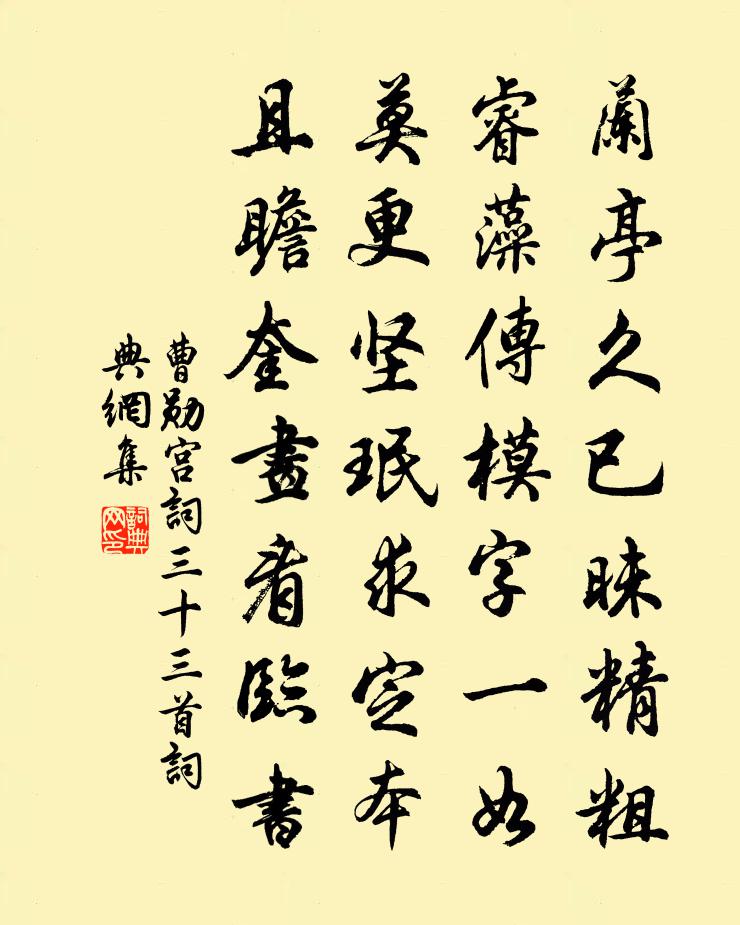 蘭亭久已昧精粗
睿藻傳模字一如
莫更坚珉求定本
且瞻奎畫看臨書
曹勛宮詞三十三首詞
典網集
詞典網印